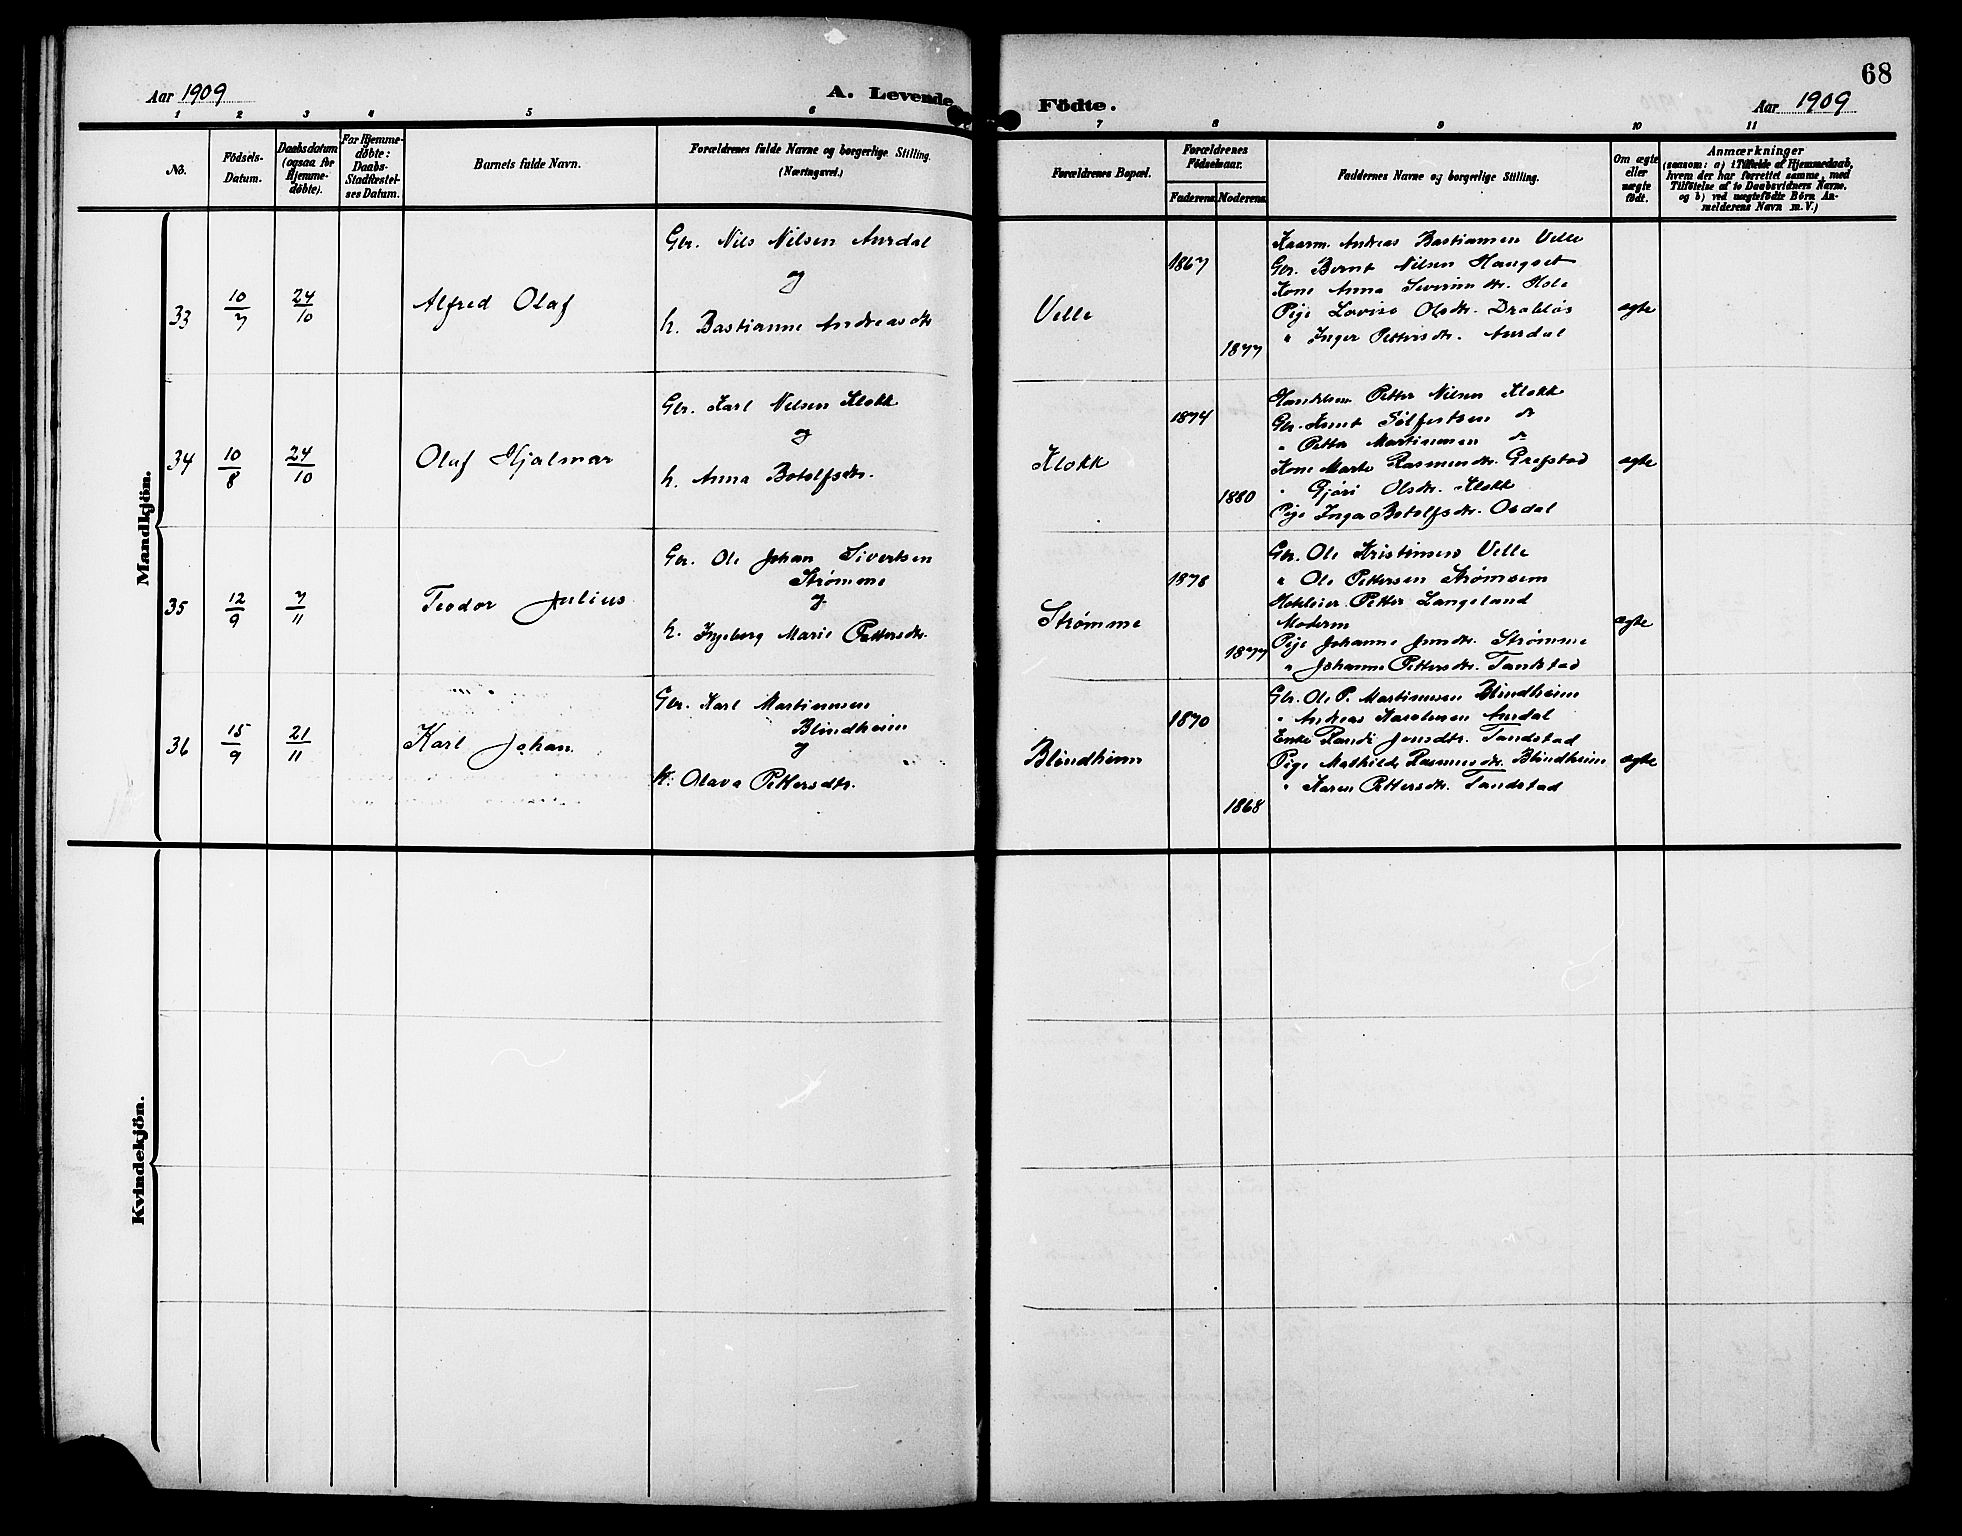 68
Aar 1909
A. Levende
Födte.
Aar 1909
1 2 3 4 5 6 7 8 9 10 11
No.
Födsels-
Datum.
Daabsdatum
(ogsaa for
Hjemme-
döbte).
For Hjemme-
döbte:
Daabs-
Stadfæstel-
ses Datum.
Barnets fulde Navn.
Forældrenes fulde Navne og borgerlige Stilling.
(Næringsvei.)
Forældrenes Bopæl.
Forældrenes
Födselsaar.
Faderens. Moderens.
Faddernes Navne og borgerlige Stilling.
Om ægte
eller
uægte
födt.
Anmærkninger
(saasom: a) i Tilfælde af Hjemmedaab,
hvem der har forrettet samme, med
Tilföielse af to Daabsvidners Navne,
og b) ved uægtefödte Börn An-
melderens Navn m. V.)
Mandkjön.
33
10/7
24/10
Alfred Olaf
Gbr. Nils Nilsen Aurdal
og
h. Bastianne Andreasdtr
Velle
1867
1877
Kaarm. Andreas Bastiansen Velle
Gbr. Bernt Nilsen Haugset
Kone Anna Severinsdtr. Hole
Pige Lovise Olsdtr. Drabløs
" Inger Pettersdtr. Aurdal
ægte
34
10/8
24/10
Olaf Hjalmar
Gbr. Karl Nilsen Klokk
og
h. Anna Botolfsdtr.
Klokk
1874
1880
Handelsm. Petter Nilsen Klokk
Gbr. Knut Sølfestsen do
" Petter Martinusen do
Kone Marte Rasmusdtr. Grepstad
" Gjøri Olsdtr. Klokk
Pige Inga Botolfsdtr. Osdal
ægte
35
12/9
7/11
Teodor Julius
Gbr. Ole Johan Sivertsen
Strømme
og
h. Ingeborg Marie Pettersdtr.
Strømme
1878
1877
Gbr. Ole Kristiansen Velle
" Ole Pettersen Strømsem
Hoteleier Petter Langeland
Moderen
Pige Johanne Jensdtr. Strømme
" Johanne Pettersdtr. Tandstad
ægte
36
15/9
21/11
Karl Johan
Gbr. Karl Martinusen
Blindheim
og
h. Olava Pettersdtr.
Blindheim
1870
1868
Gbr. Ole P. Martinusen Blindheim
" Andreas Karolusen Aurdal
Enke Randi Jensdtr. Tandstad
Pige Mathilde Rasmusdtr. Blindheim
" Karen Pettersdtr. Tandstad
ægte
Kvindekjön.